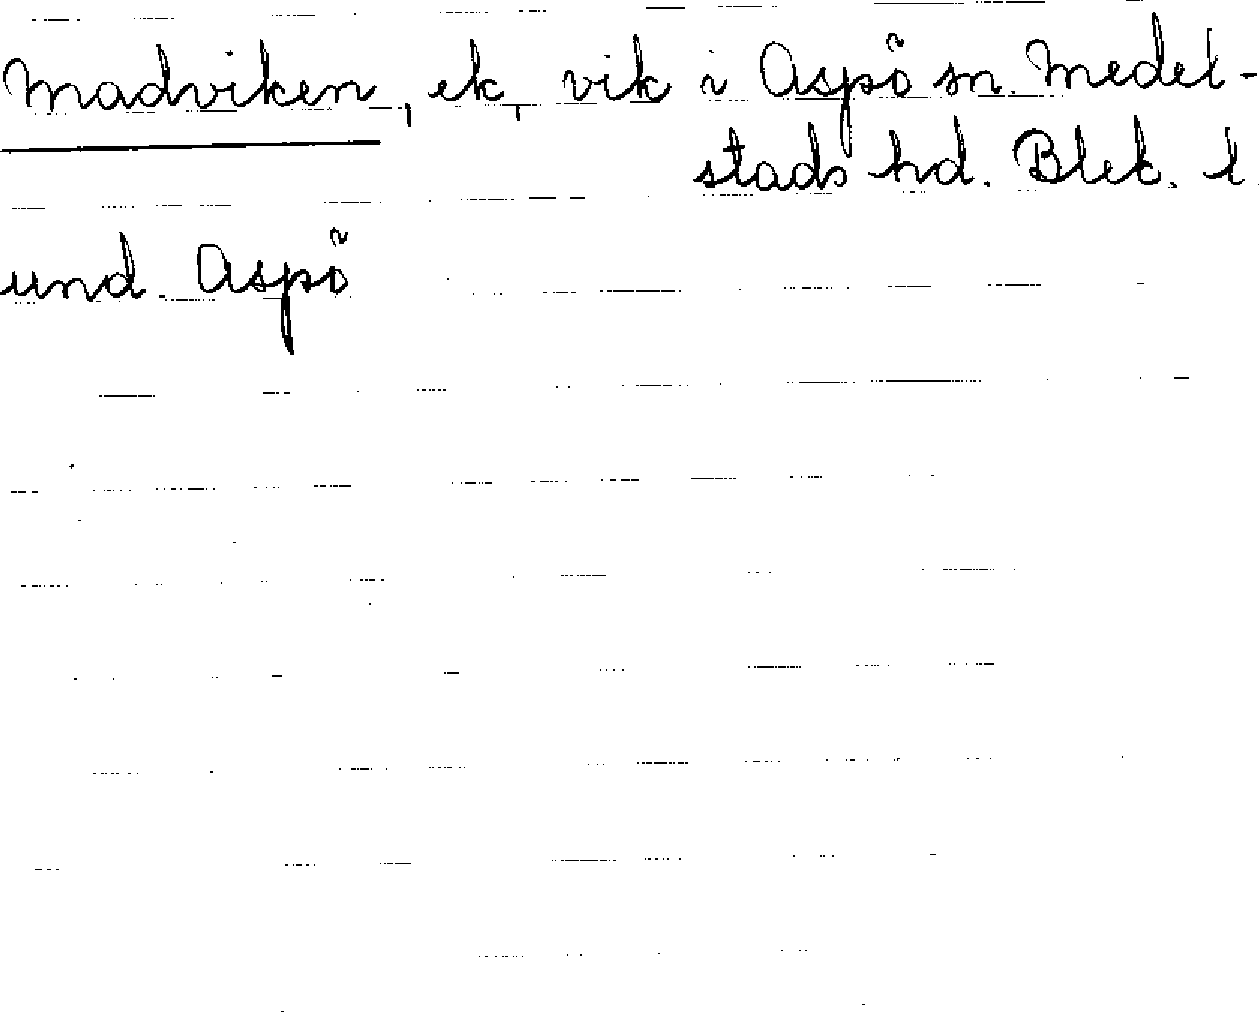 Madviken, ek, vik i Aspö sn. Medel-
stads hd. Blek. l
und. Aspö